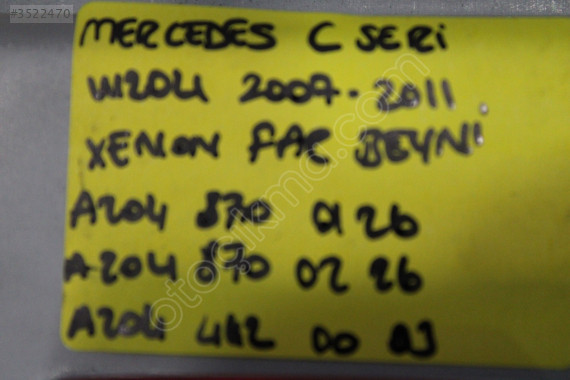 #3522470
MERCEDES C SERİ
W204 2007-2011
XENON FAR BEYNİ
A204 870 01 26
A204 870 02 26
A204 442 00